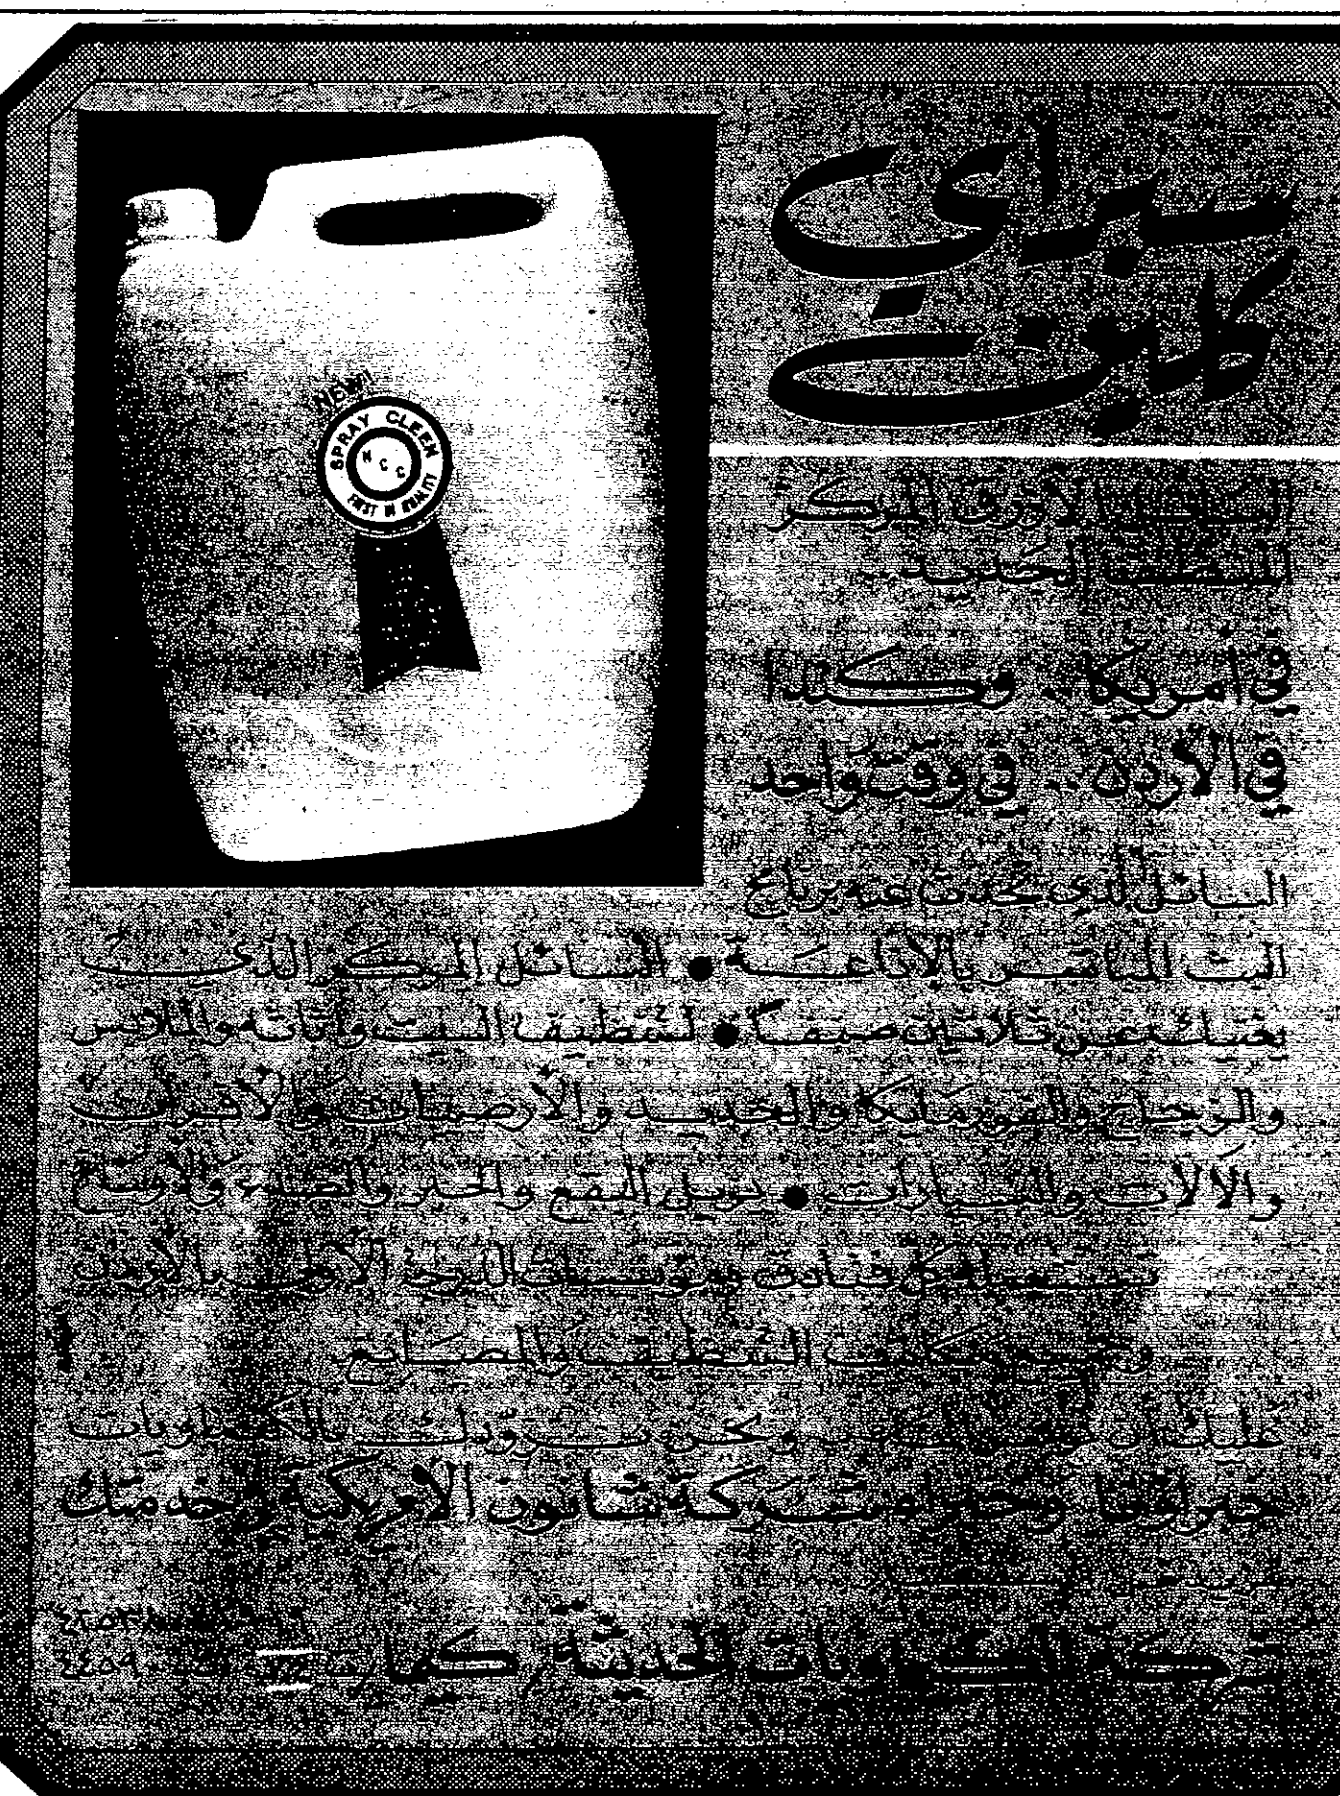 سبراي
كلين
NEW!
SPRAY CLEEN
NCC
FIRST IN QUALITY
السائل الأزرق المركز
للنظافة الجديد..
في أمريكا.. وكندا
في الأردن.. في وقت واحد
السائل الذي تحدث عنه برنامج
البث المباشر بالإذاعة ● السائل المركز الذي
يغنيك عن ثلاثين صنفاً ● لتنظيف البيت وأثاثه والملابس
والزجاج والفورمايكا والحديد والأرضيات والأفران
والآلات والسيارات ● يزيل البقع والحبر والصدء والأوساخ
تستعمله كل فنادق ومؤسسات الدرجة الأولى بالأردن
التنظيف والمصانع
عليك أن ونحن نزودك بالكيماويات
خبراؤنا وخبراء شركة شانون الأمريكية خدمتك
شركة الكيماويات الحديثة